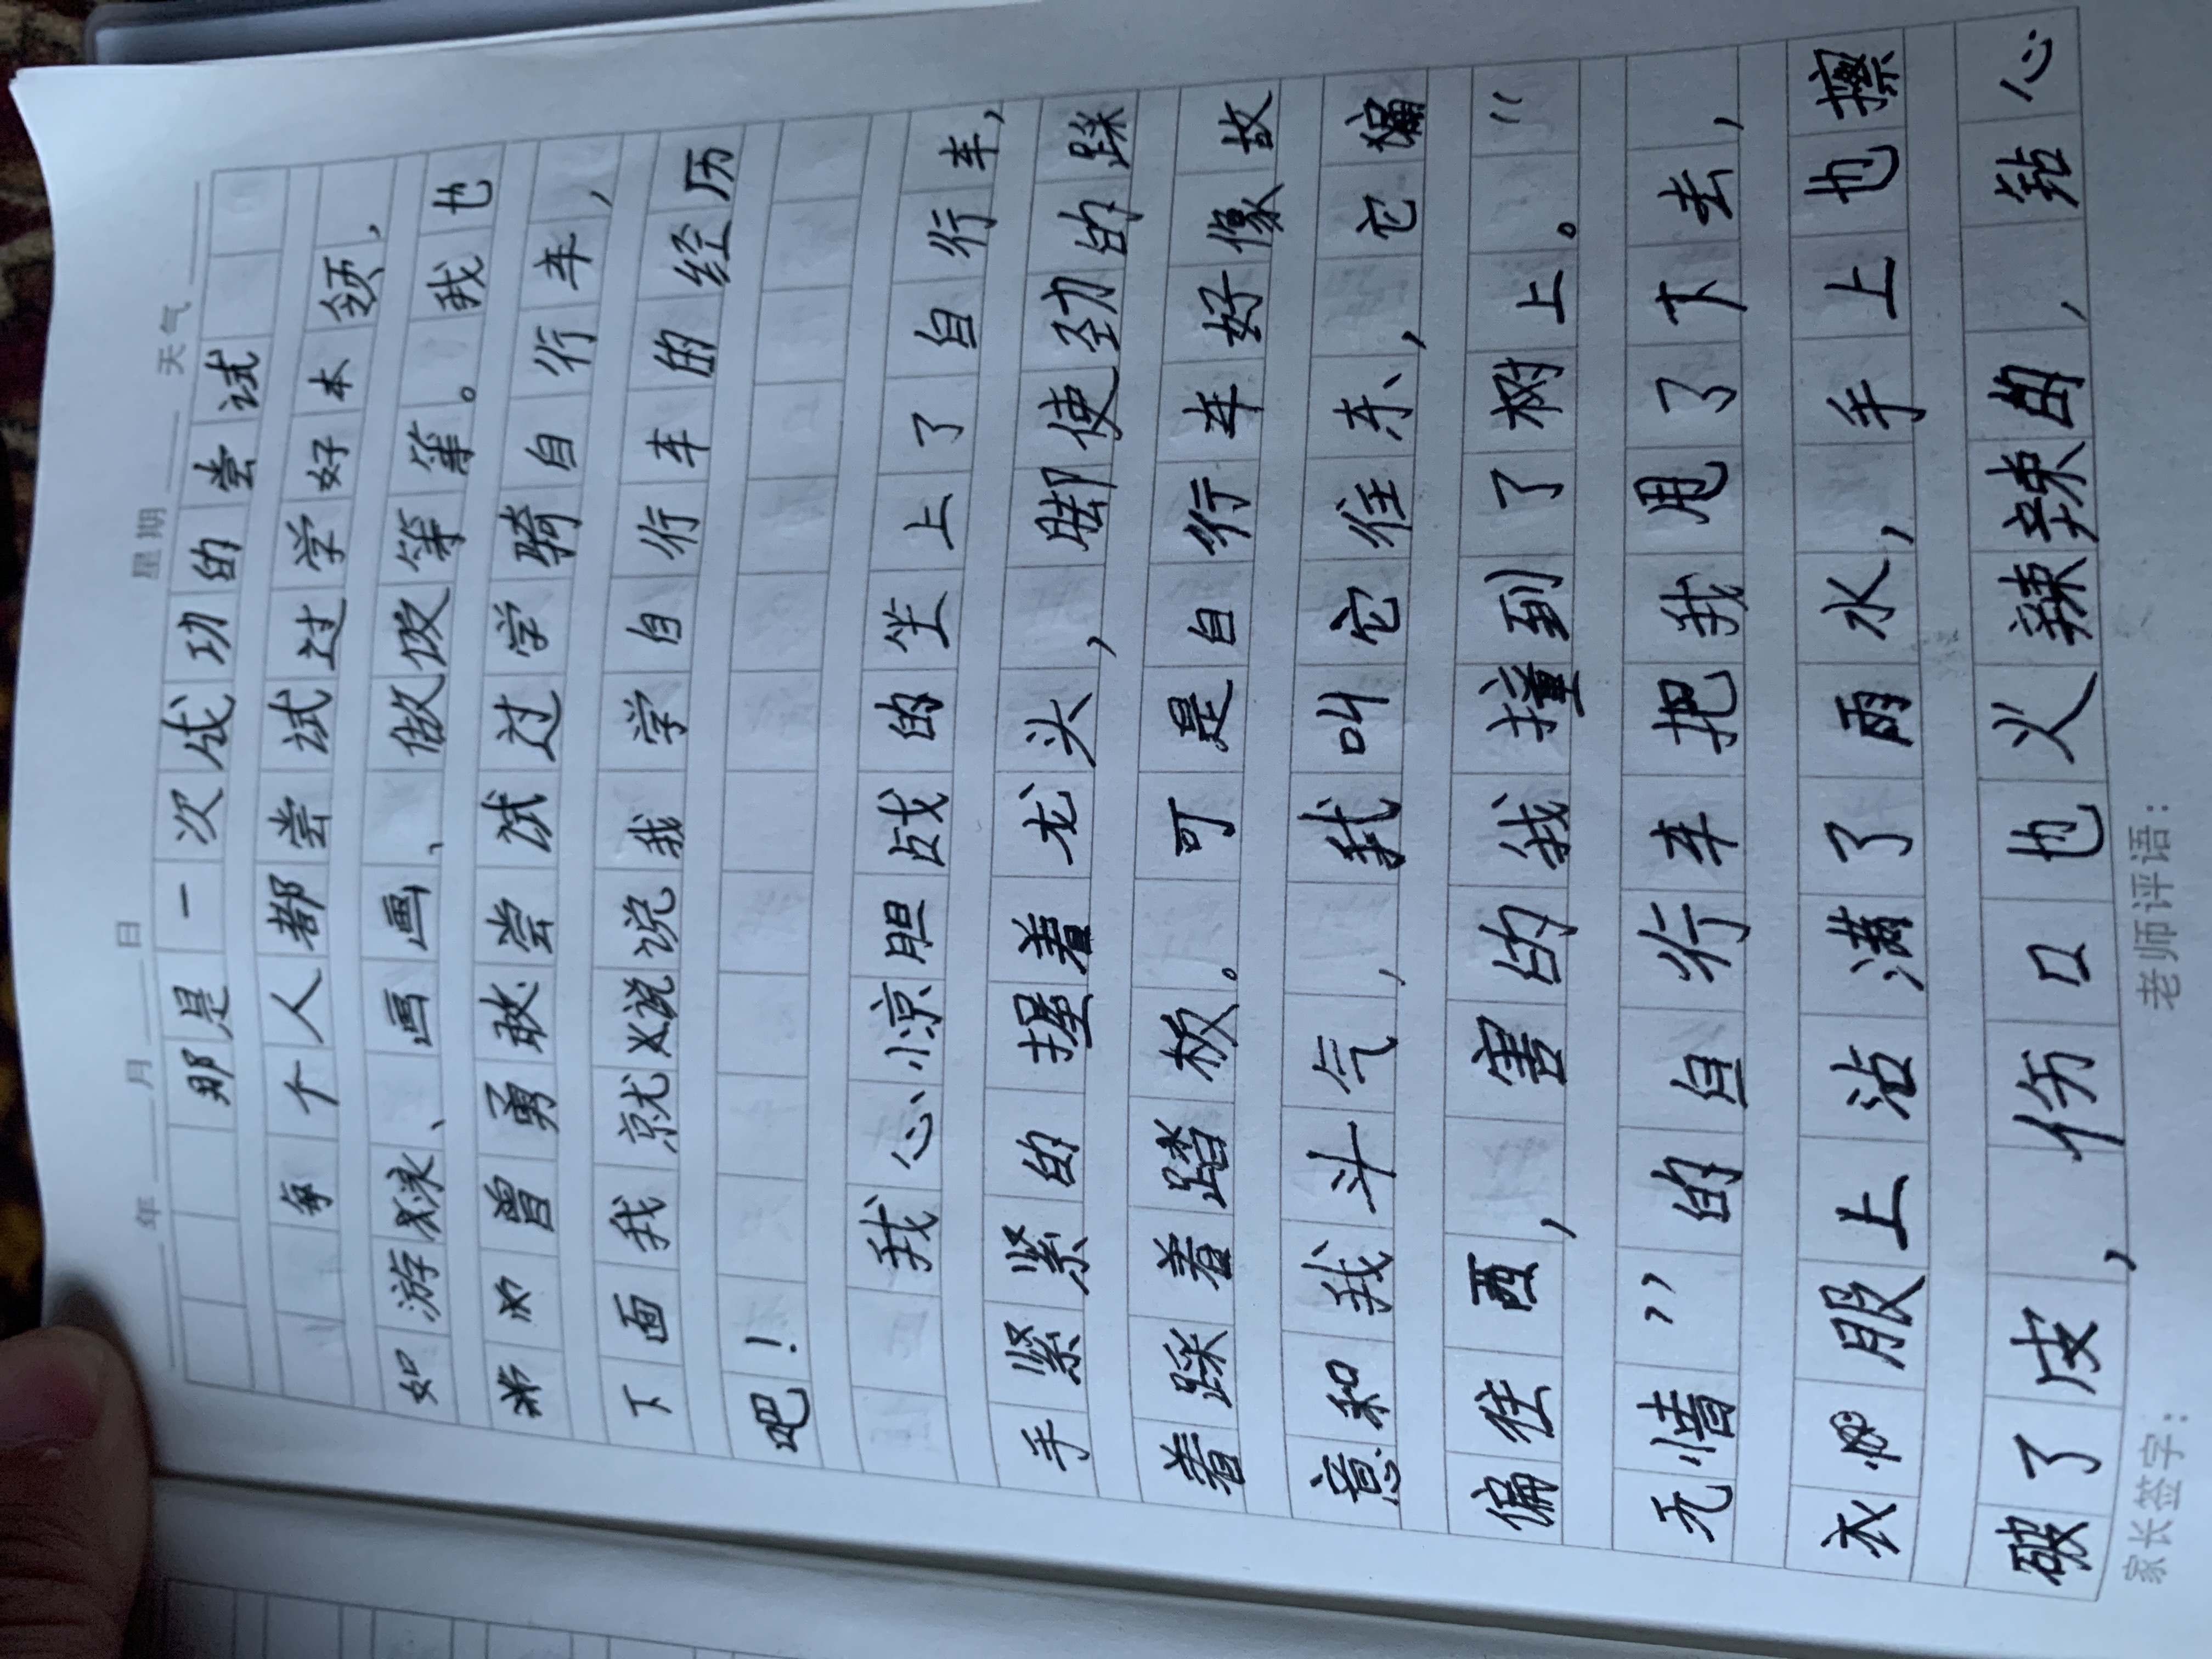 年 月 日 星期 天气
那是一次成功的尝试
每个人都尝试过学好本领,
如游泳、画画、做饭等等。我也
曾勇敢尝试过学骑自行车,
下面我就说说我学自行车的经历
吧!
我心惊胆战的坐上了自行车,
手紧紧的握着龙头,脚使劲的踩
着踩着踏板。可是自行车好像故
意和我斗气,我叫它往东,它偏
偏往西,害的我撞到了树上。“
无情”的自行车把我甩了下去,
衣服上沾满了雨水,手上也擦
破了皮,伤口也火辣辣的,钻心
家长签字: 老师评语: